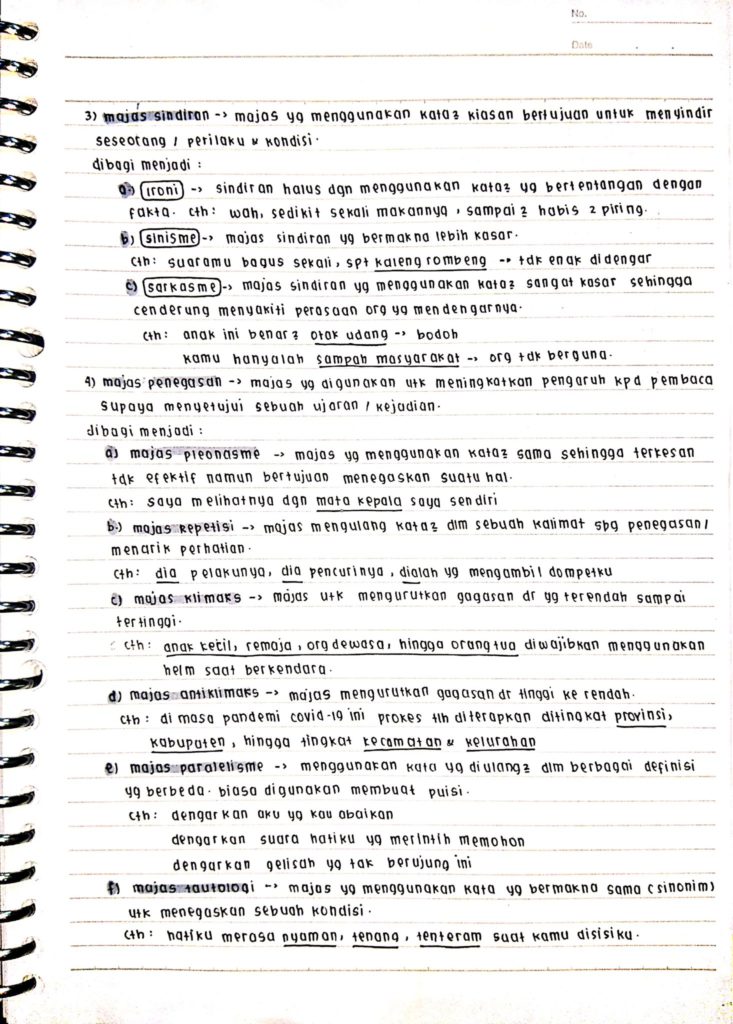 No.
Date . .
3) majas sindiran -> majas yg menggunakan kata2 kiasan bertujuan untuk menyindir
seseorang / perilaku & kondisi.
dibagi menjadi :
a.) ironi -> sindiran halus dgn menggunakan kata2 yg bertentangan dengan
fakta. cth: wah, sedikit sekali makannya, sampai2 habis 2 piring.
b) sinisme -> majas sindiran yg bermakna lebih kasar.
cth: suaramu bagus sekali, spt kaleng rombeng -> tdk enak didengar
c) sarkasme -> majas sindiran yg menggunakan kata2 sangat kasar sehingga
cenderung menyakiti perasaan org yg mendengarnya.
cth: anak ini benar2 otak udang -> bodoh
kamu hanyalah sampah masyarakat -> org tdk berguna.
4) majas penegasan -> majas yg digunakan utk meningkatkan pengaruh kpd pembaca
supaya menyetujui sebuah ujaran / kejadian.
dibagi menjadi :
a) majas pleonasme -> majas yg menggunakan kata2 sama sehingga terkesan
tdk efektif namun bertujuan menegaskan suatu hal.
cth: saya melihatnya dgn mata kepala saya sendiri
b.) majas repetisi -> majas mengulang kata2 dlm sebuah kalimat sbg penegasan/
menarik perhatian.
cth: dia pelakunya, dia pencurinya, dialah yg mengambil dompetku
c) majas klimaks -> majas utk mengurutkan gagasan dr yg terendah sampai
tertinggi.
cth: anak kecil, remaja, org dewasa, hingga orang tua diwajibkan menggunakan
helm saat berkendara.
d) majas antiklimaks -> majas mengurutkan gagasan dr tinggi ke rendah.
cth: di masa pandemi covid-19 ini prokes tlh diterapkan ditingkat provinsi,
kabupaten, hingga tingkat kecamatan & kelurahan
e) majas paralelisme -> menggunakan kata yg diulang2 dlm berbagai definisi
yg berbeda. biasa digunakan membuat puisi.
cth: dengarkan aku yg kau abaikan
dengarkan suara hatiku yg merintih memohon
dengarkan gelisah yg tak berujung ini
f) majas tautologi -> majas yg menggunakan kata yg bermakna sama (sinonim)
utk menegaskan sebuah kondisi.
cth: hatiku merasa nyaman, tenang, tenteram saat kamu disisiku.